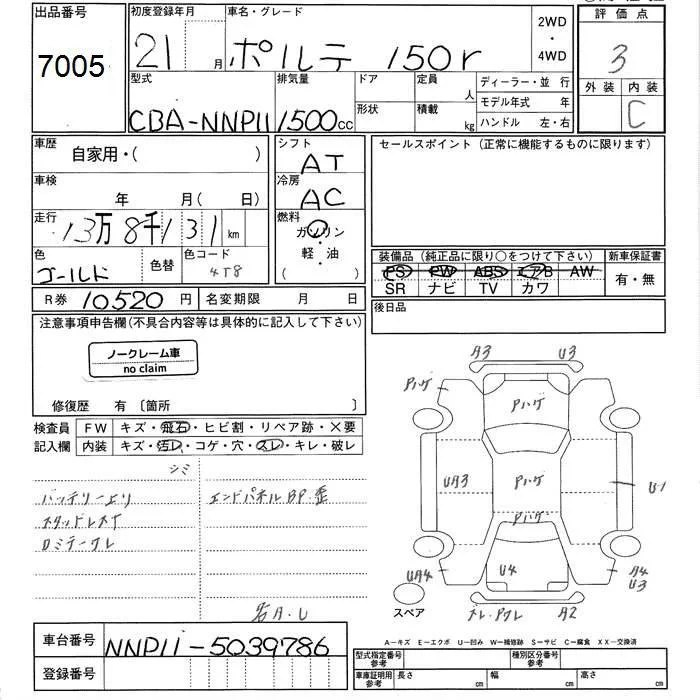 出品番号
7005
初度登録年月
21 月
車名・グレード
ポルテ 150r
2WD
・
4WD
評価点
3
外装 内装
C
型式
CBA-NNP11
排気量
1500cc
ドア
形状
定員
人
積載
kg
ディーラー・並 行
モデル年式 年
ハンドル 左・右
車歴
自家用・( )
シフト
AT
セールスポイント (正常に機能するものに限ります)
車検
年 月( 日)
冷房
AC
走行
13万8千131km
燃料
ガソリン
・
軽・油
( )
色
ゴールド
色替
色コード
4T8
装備品 (純正品に限り○をつけて下さい)
PS PW ABS エアB AW
SR ナビ TV カワ
新車保証書
有・無
R券 10520円 名変期限 月 日
後日品
注意事項申告欄(不具合内容等は具体的に記入して下さい)
ノークレーム車
no claim
修復歴 有 〔箇所 〕
検査員
記入欄
FW キズ・飛石・ヒビ割・リペア跡・×要
内装 キズ・汚レ・コゲ・穴・スレ・キレ・破レ
シミ
バッテリー上り
エンドパネルBP・歪
スタッドレス付
ロミテークレ
若A.U
A3 U3
Pハゲ
Pハゲ
UA3
Pハゲ
U1
Pハゲ
UA4
U4
A4
U3
スペア
A2
A－キズ E－エクボ U－凹み W－補修跡 S－サビ C－腐食 XX－交換済
車台番号 NNP11-5039786
登録番号
型式指定番号
参考
種別区分番号
参考
車庫証明用
参考
長さ cm 幅 cm 高さ cm